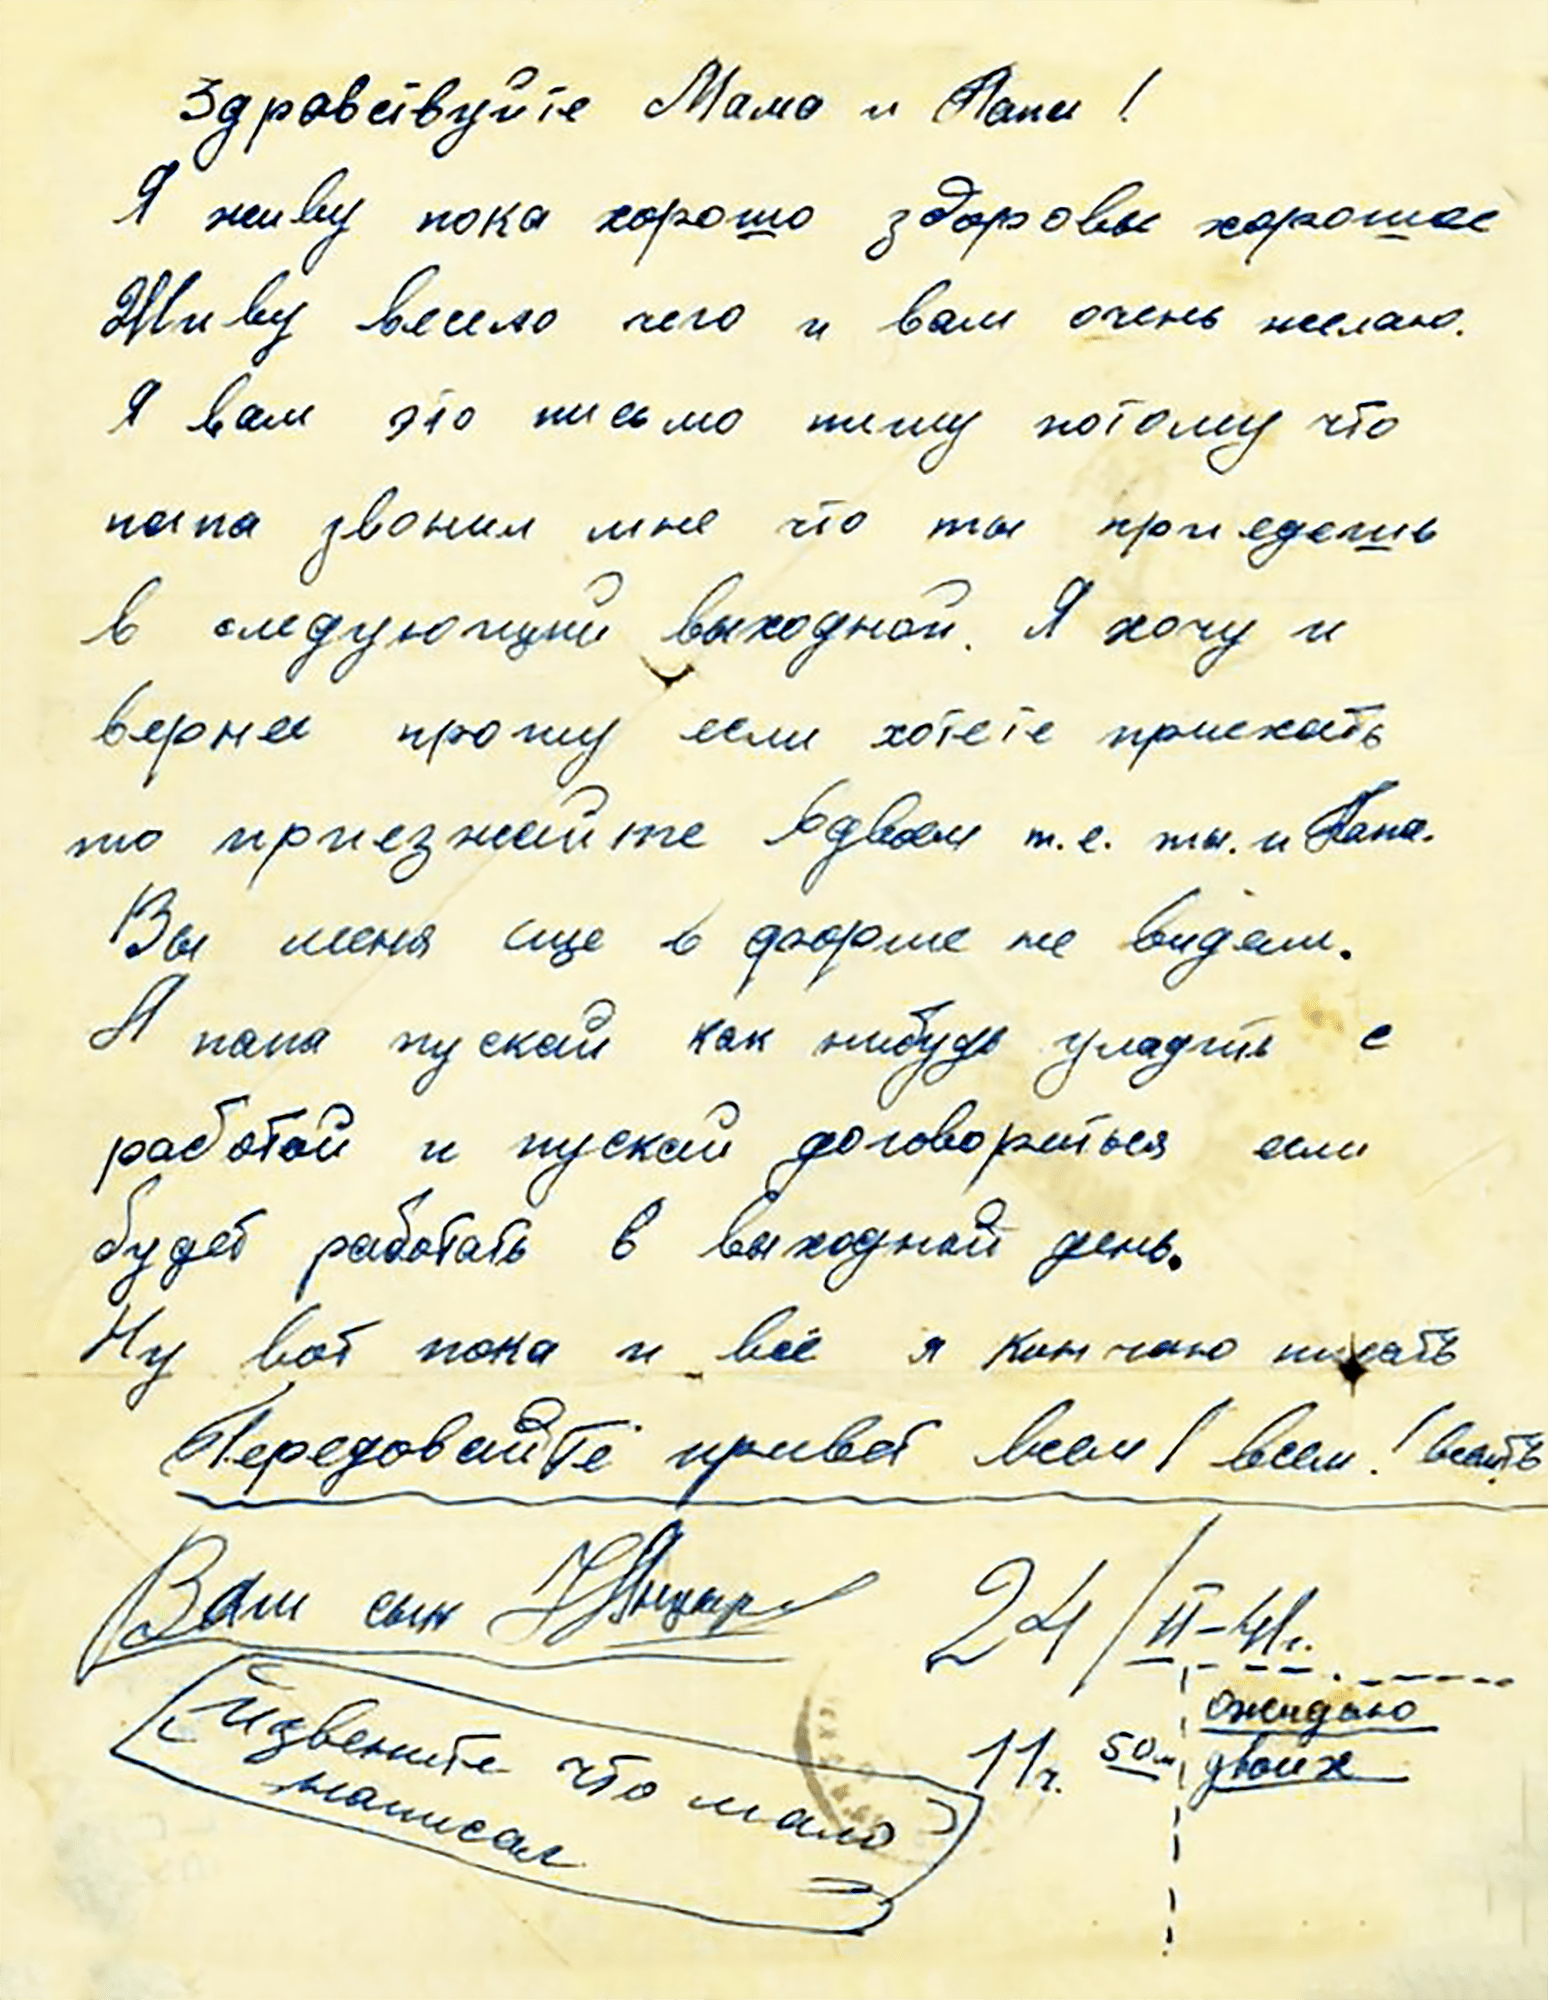 Здравствуйте Мама и Папа!
Я живу пока хорошо здоровье хорошее
Живу весело чего и вам очень желаю.
Я вам это письмо пишу потому что
папа звонил мне что ты приедешь
в следующий выходной. Я хочу и
вернее прошу если хотете приехать
то приезжайте вдвоем т.е. ты. и Папа.
Вы меня еще в форме не видели.
А папа пускай как нибудь уладить с
работой и пускай договориться если
будет работать в выходной день.
Ну вот пока и всё я кончаю писать
Передовайте привет всем! всем!
Ваш сын 24/II-41г.
Извените что мало
написал
11ч. 50м
ожидаю
двоих